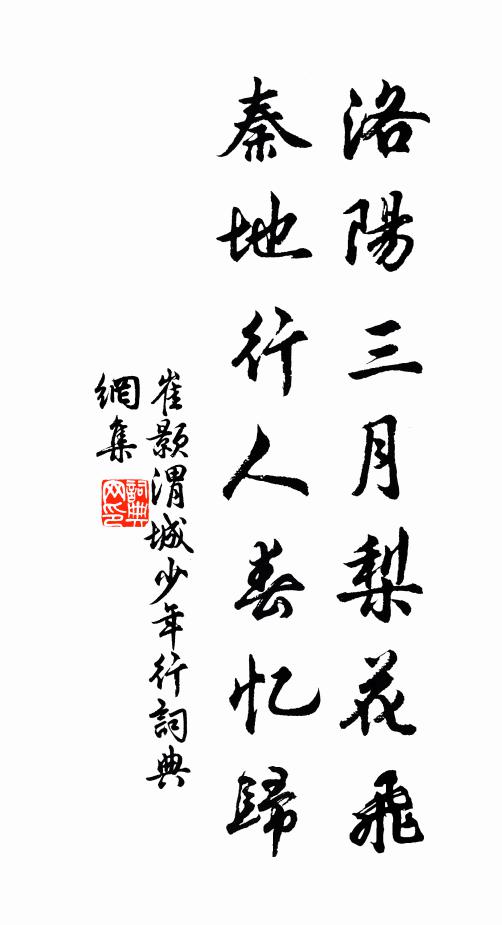 洛陽三月梨花飛
秦地行人春忆歸
崔顥渭城少年行詞典
網集
詞典
网印